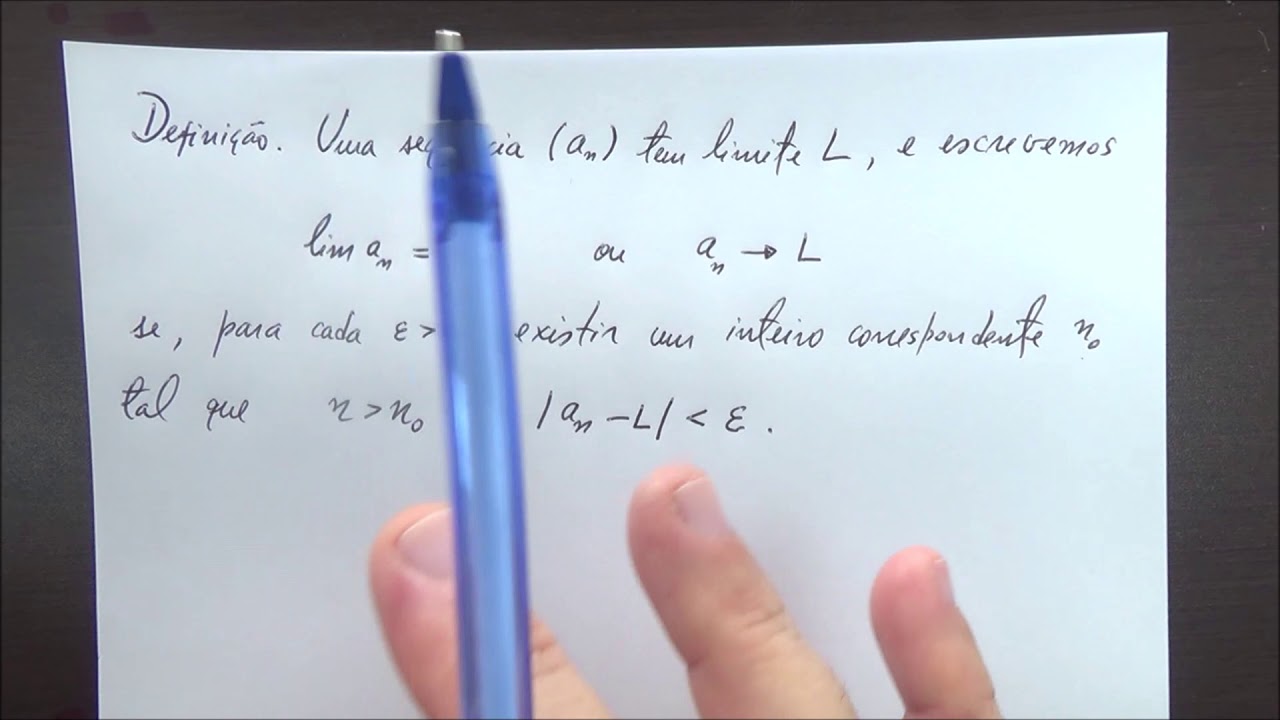 Definição. Uma sequência (aₙ) tem limite L, e escrevemos
lim aₙ = ou aₙ → L
se, para cada ε > existir um inteiro correspondente n₀
tal que n > n₀ |aₙ - L| < ε.